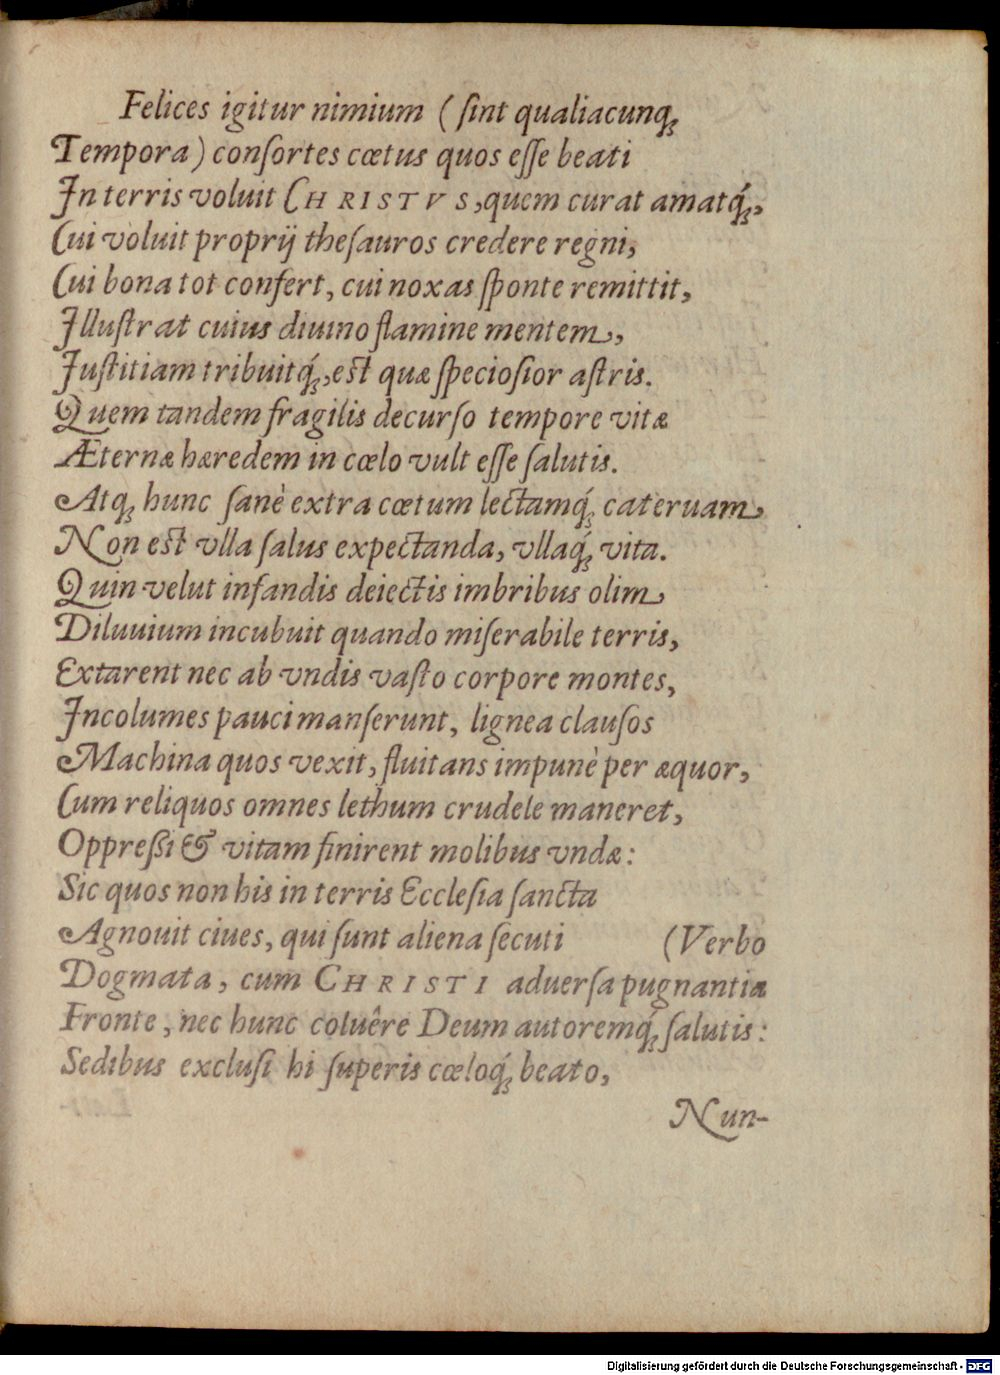 Felices igitur nimium ( ſint qualiacunq́;
Tempora ) conſortes cœtus quos eſſe beati
In terris voluit CHRISTVS, quem curat amatq́;,
Cui voluit proprij theſauros credere regni,
Cui bona tot confert, cui noxas ſponte remittit,
Illuſtrat cuius diuino flamine mentem,
Iuſtitiam tribuitq́;, eſt quæ ſpecioſior aſtris.
Quem tandem fragilis decurſo tempore vitæ
Æternæ hæredem in cœlo vult eſſe ſalutis.
Atq; hunc ſanè extra cœtum lectamq́; cateruam
Non eſt vlla ſalus expectanda, vllaq́; vita.
Quin velut infandis deiectis imbribus olim
Diluuium incubuit quando miſerabile terris,
Extarent nec ab vndis vaſto corpore montes,
Incolumes pauci manſerunt, lignea clauſos
Machina quos vexit, fluitans impunè per æquor,
Cum reliquos omnes lethum crudele maneret,
Oppreßi & vitam finirent molibus vndæ:
Sic quos non his in terris Eccleſia ſancta
Agnouit ciues, qui ſunt aliena ſecuti (Verbo
Dogmata, cum CHRISTI aduerſa pugnantia
Fronte, nec hunc coluêre Deum autoremq́; ſalutis:
Sedibus excluſi hi ſuperis cœloq́; beato,
Nun-
Digitalisierung gefördert durch die Deutsche Forschungsgemeinschaft - DFG